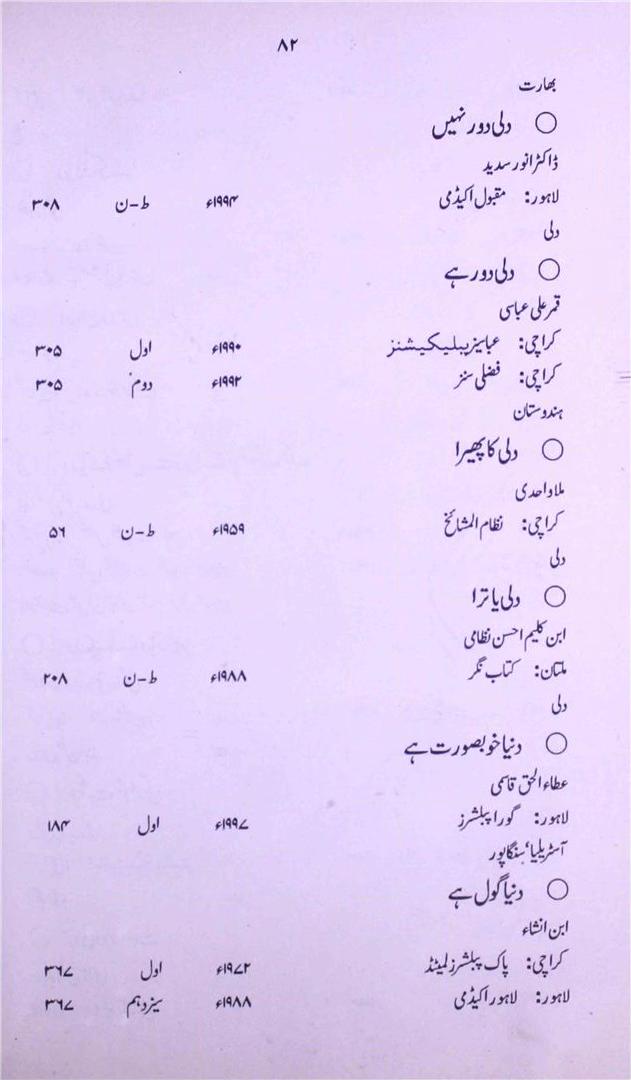 ۸۲
بھارت
○ دلی دور نہیں
ڈاکٹر انور سدید
لاہور: مقبول اکیڈمی ۱۹۹۴ء ط-ن ۳۰۸
دلی
○ دلی دور ہے
قمر علی عباسی
کراچی: عباسیز پبلیکیشنز ۱۹۹۰ء اول ۳۰۵
کراچی: فضلی سنز ۱۹۹۲ء دوم ۳۰۵
ہندوستان
○ دلی کا پھیرا
ملا واحدی
کراچی: نظام المشائخ ۱۹۵۹ء ط-ن ۵۶
دلی
○ دلی یاترا
ابن کلیم احسن نظامی
ملتان: کتاب نگر ۱۹۸۸ء ط-ن ۲۰۸
دلی
○ دنیا خوبصورت ہے
عطاء الحق قاسمی
لاہور: گورا پبلشرز ۱۹۹۷ء اول ۱۸۴
آسٹریلیا، سنگاپور
○ دنیا گول ہے
ابن انشاء
کراچی: پاک پبلشرز لمیٹڈ ۱۹۷۲ء اول ۳۶۷
لاہور: لاہور اکیڈمی ۱۹۸۸ء سیزدہم ۳۶۷